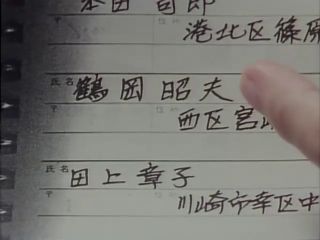 本田 司郎
港北区篠原
氏名 鶴岡 昭夫
〒
西区宮
氏名 田上 章子
〒
川崎市幸区中